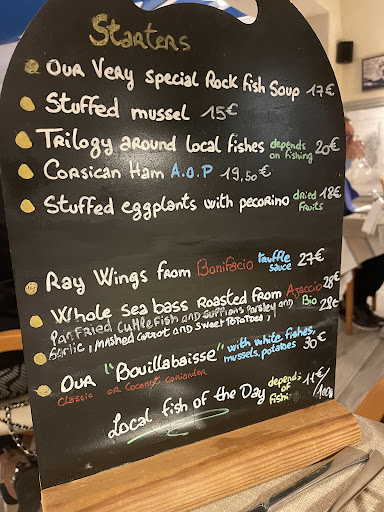 Starters
Our Very special Rock fish Soup 17€
Stuffed mussel 15€
Trilogy around local fishes depends on fishing 20€
Corsican Ham A.O.P 19,50€
Stuffed eggplants with pecorino dried fruits 18€
Ray Wings from Bonifacio truffle sauce 27€
Whole Sea bass Roasted from Ajaccio 28€
Pan Fried Cuttlefish and suppions Parsley and Bio 28€
garlic, mashed carrot and sweet potatoes,
Our "Bouillabaisse" with white fishes, mussels, potatoes 30€
Classic or Coconut coriander
Local fish of the Day depends of fishing 11€/100g